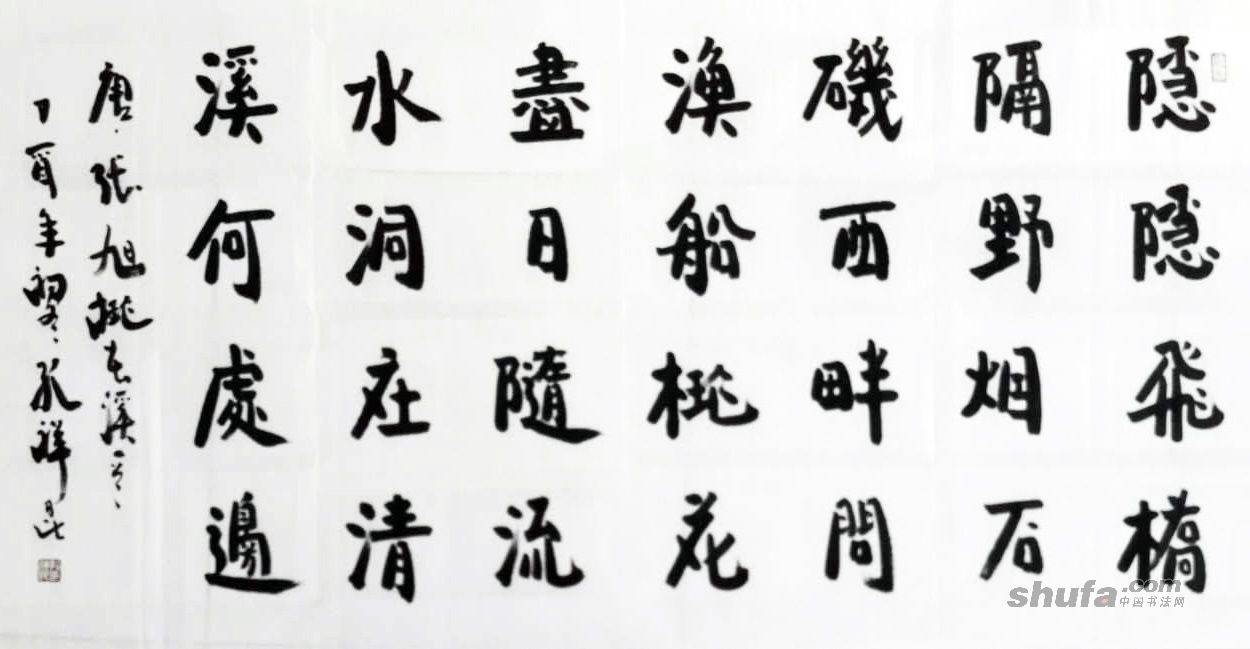 隱隱飛橋
隔野烟石
磯西畔問
漁船桃花
盡日隨流
水洞在清
溪何處邊
唐·張旭桃花溪
丁酉年初冬孔祥昆
shufa.com
中国书法网